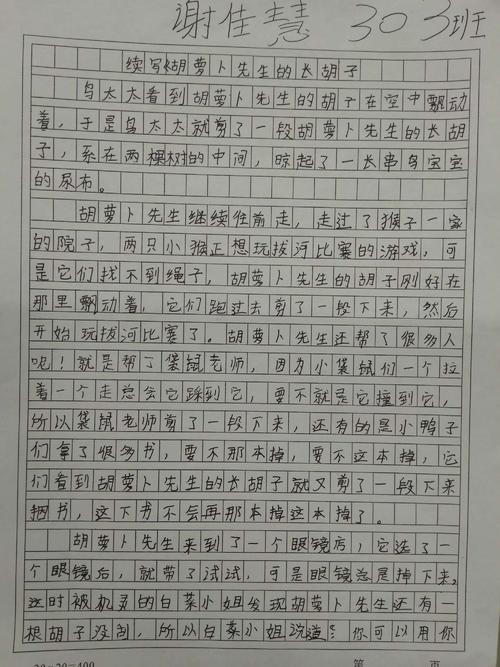 谢佳慧 303班
续写《胡萝卜先生的长胡子
鸟太太看到胡萝卜先生的胡子在空中飘动
着，于是鸟太太就剪了一段胡萝卜先生的长胡
子，系在两棵树的中间，晾起了一长串鸟宝宝
的尿布。
胡萝卜先生继续往前走，走过了猴子一家
的院子，两只小猴正想玩拔河比赛的游戏，可
是它们找不到绳子，胡萝卜先生的胡子刚好在
那里飘动着，它们跑过去剪了一段下来，然后
开始玩拔河比赛了。胡萝卜先生还帮了很多人
呢！就是帮了袋鼠老师，因为小袋鼠们一个拉
着一个走总会它踩到它，要不就是它撞到它，
所以袋鼠老师剪了一段下来，还有的是小鸭子
们拿了很多书，要不那本掉，要不这本掉，它
们看到胡萝卜先生的长胡子就又剪了一段下来
捆书，这下书不会再那本掉这本掉了。
胡萝卜先生来到了一个眼镜店，它选了一
个眼镜后，就带了试试，可是眼镜总是掉下来，
这时被机灵的白菜小姐发现胡萝卜先生还有一
根胡子没刮，所以白菜小姐说道：你可以用你
20×20=400 第 页